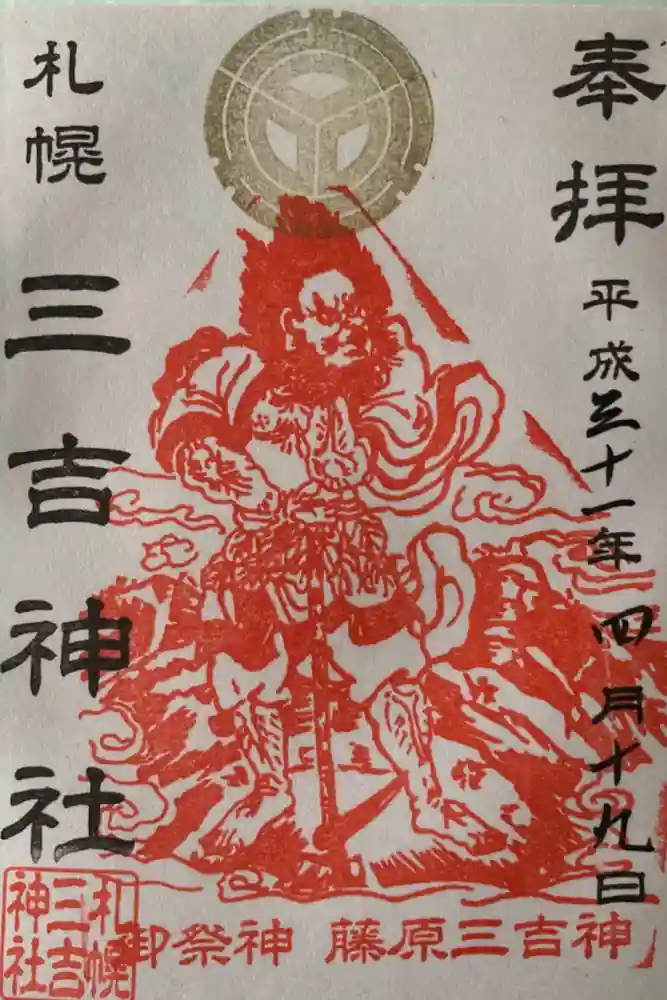 奉拝
平成三十一年四月十九日
札幌
三吉神社
御祭神 藤原三吉神
札幌
三吉
神社